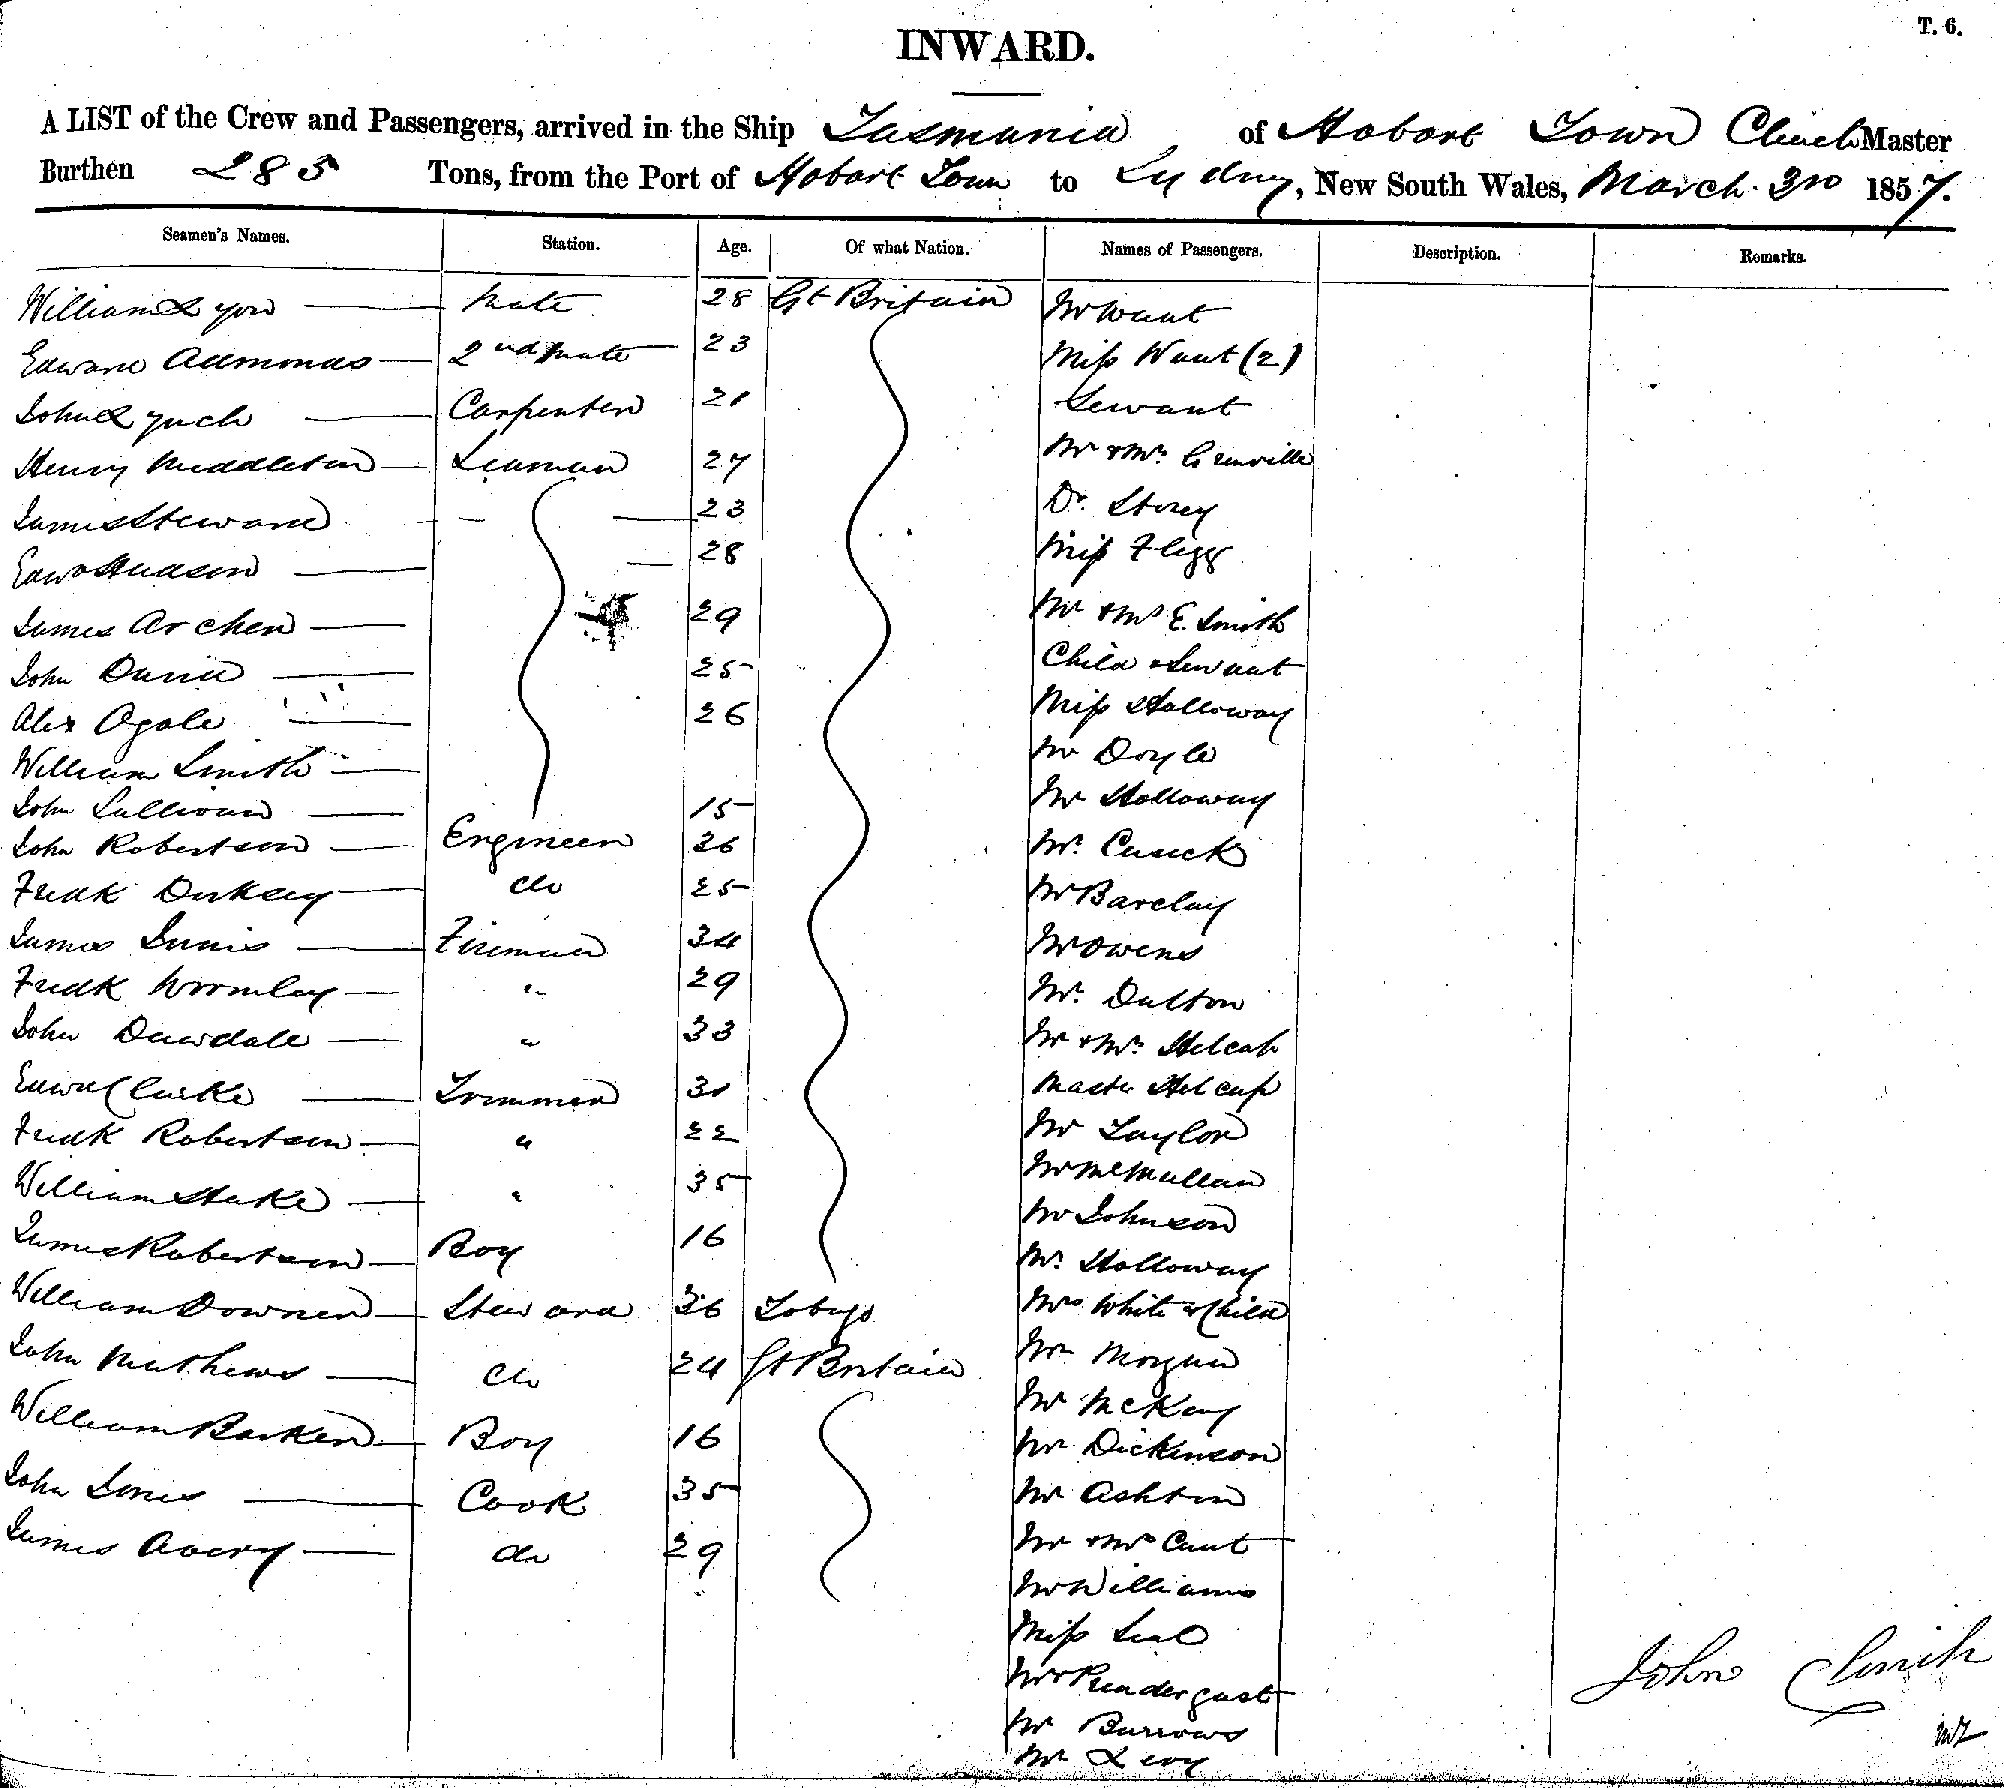 T. 6.
INWARD.
A LIST of the Crew and Passengers, arrived in the Ship Tasmania of Hobart Town Clinch Master
Burthen 285 Tons, from the Port of Hobart Town to Sydney, New South Wales, March 3rd 1857.
Seamen's Names. Station. Age. Of what Nation. Names of Passengers. Description. Remarks.
William Lyon Mate 28 Gt Britain Mr Want
Edward Admonds 2nd Mate 23 Miss Want (2)
John Lynch Carpenter 21 Servant
Henry Middleton Seaman 27 Mr & Mrs Grenville
James Steward 23 Dr. Storey
Edwd Hudson 28 Miss Flegg
James Archer 29 Mr & Mrs E. Smith
John David 25 Child & Servant
Alex Ogale 26 Miss Holloway
William Smith Mr Doyle
John Sullivan 15 Mr Holloway
John Robertson Engineer 36 Mr. Cusick
Fredk do 25 Mr Barclay
James Innis Fireman 34 Mr Owens
Fredk Wormley " 29 Mr. Dalton
John Dawdale " 33 Mr & Mrs
Edwd Clarke Trimmer 31 Master
Fredk Robertson " 22 Mr Taylor
William Stake " 35 Mr McMullan
James Robertson Boy 16 Mr Johnson
Mr. Holloway
William Downer Steward 36 Tobago Mrs White & Child
John Mathews do 24 Gt Britain Mr Morgan
Mr McKay
William Barker Boy 16 Mr Dickinson
John Jones Cook 35 Mr Ashton
James Avery do 29 Mr & Mrs Cant
Mr Williams
Miss Seal
Mr Prendergast
Mr Burrows
Mr Levy
John Clinch